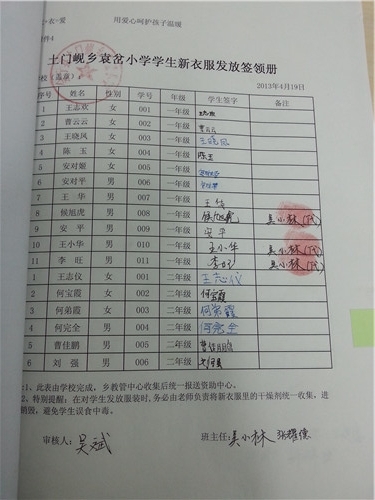 衣·爱 用爱心呵护孩子温暖
件4
土门岘乡袁岔小学学生新衣服发放签领册
校（盖章） 2013年4月19日
序号 姓名 性别 学号 年级 学生签字 备注
1 王志欢 女 001 一年级
2 曹云云 女 002 一年级 曹云云
3 王晓凤 女 003 一年级 王晓凤
4 陈 玉 女 004 一年级 陈玉
5 安对姬 女 005 一年级
6 安对平 男 006 一年级
7 王 华 男 007 一年级 王华
8 侯旭虎 男 008 一年级 侯旭虎 吴小林(代)
9 安 平 男 009 一年级 安平
10 王小华 男 010 一年级 王小华 吴小林(代)
11 李 旺 男 011 一年级 李旺 吴小林(代)
1 王志仪 女 001 二年级 王志仪
2 何宝霞 女 002 二年级 何宝霞
3 何弟霞 女 003 二年级 何弟霞
4 何完全 男 004 二年级 何完全
5 曹佳鹏 男 005 二年级 曹佳鹏
6 刘 强 男 006 二年级
:1、此表由学校完成，乡教管中心收集后统一报送资助中心。
2、特别提醒：在对学生发放服装时,务必由老师负责将新衣服里的干燥剂统一收集，进
销毁，避免学生误食中毒。
审核人：吴斌 班主任：吴小林 张耀德